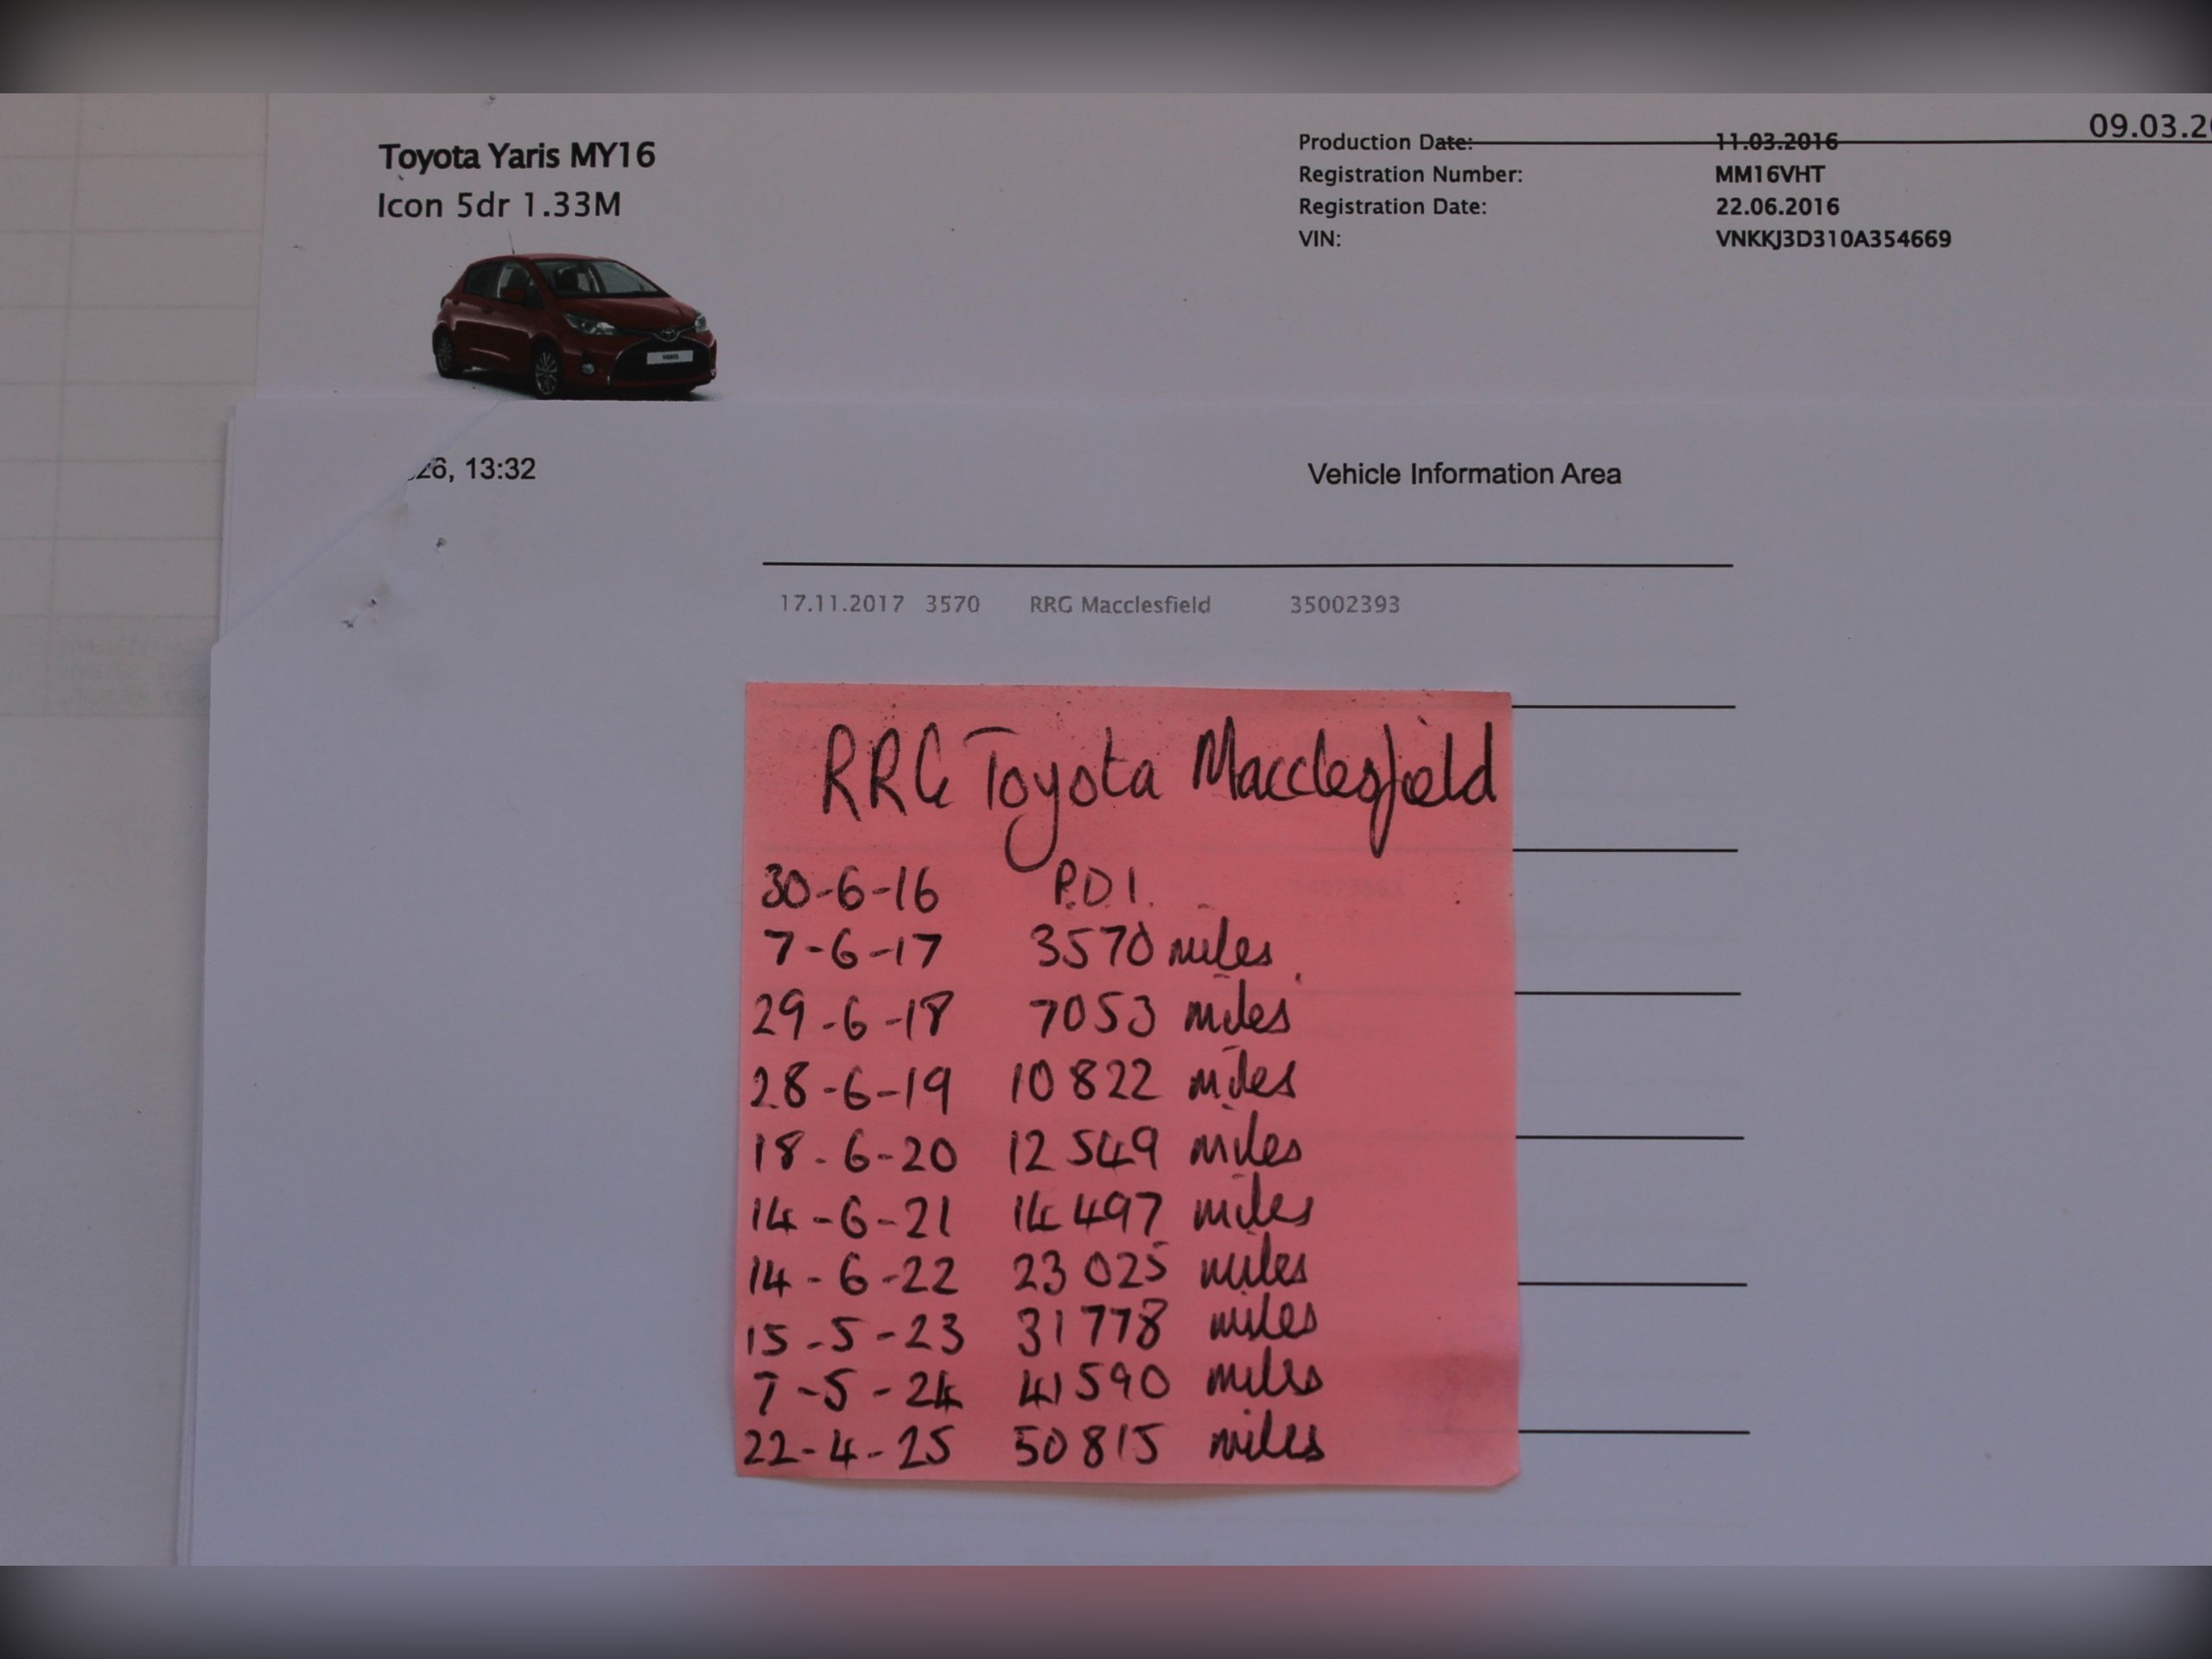 09.03.2
Toyota Yaris MY16
Icon 5dr 1.33M
Production Date: 11.03.2016
Registration Number: MM16VHT
Registration Date: 22.06.2016
VIN: VNKKJ3D310A354669
26, 13:32
Vehicle Information Area
17.11.2017 3570 RRG Macclesfield 35002393
RRG Toyota Macclesfield
30-6-16 P.D.I.
7-6-17 3570 miles
29-6-18 7053 miles
28-6-19 10822 miles
18-6-20 12549 miles
14-6-21 14497 miles
14-6-22 23025 miles
15-5-23 31778 miles
7-5-24 41590 miles
22-4-25 50815 miles